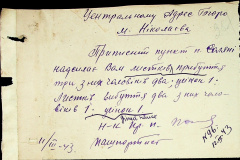 Центральному Адрес Бюро
м. Николаєва
Приписний пункт п. Соляні
надсилає Вам листків прибуття
три з них чоловіків два - жінок 1.
Листків вибуття два з них чоло-
віків 1 - жінок 1
Н-к пр. п.
11/III-43 Паспортист